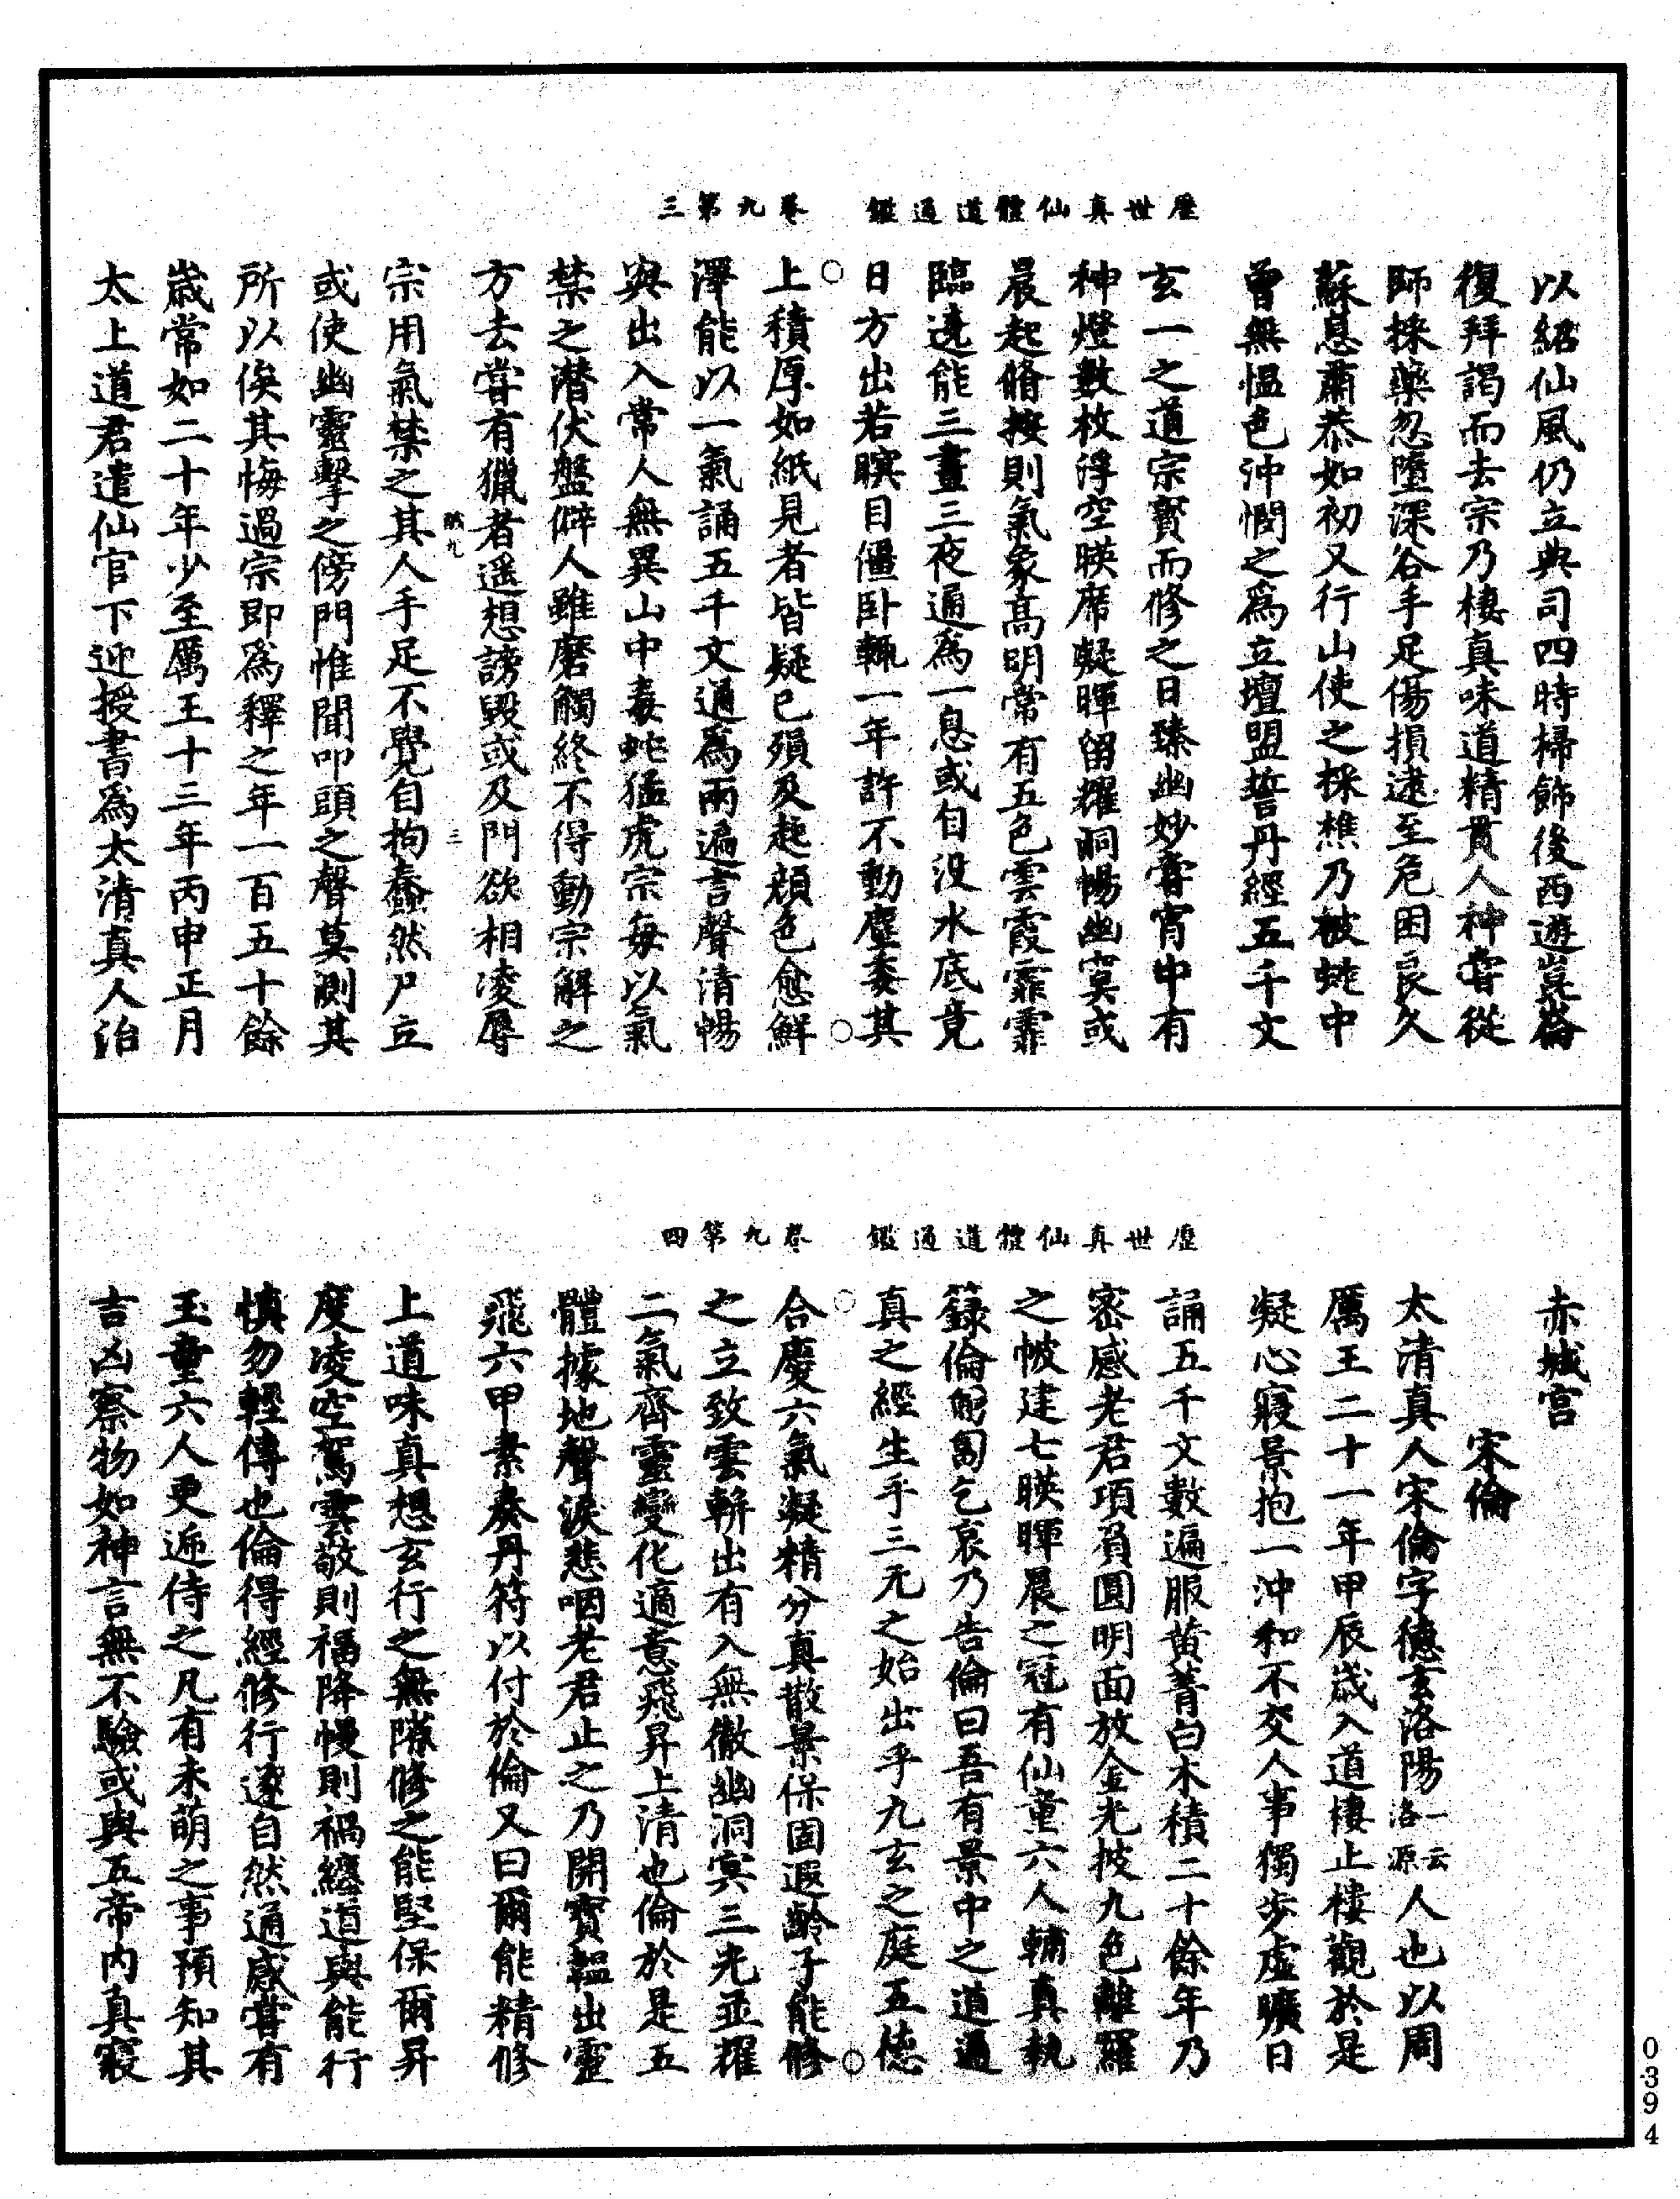 歷世真仙體道通鑑　卷九第三
以紹仙風仍立典司四時掃飾後西遊崑崙
復拜謁而去宗乃棲真味道精貫人神嘗從
師採藥忽墮深谷手足傷損逮至危困良久
蘇息肅恭如初又行山使之採樵乃被蛇中
曾無愠色沖憫之爲立壇盟誓丹經五千文
玄一之道宗寳而修之日臻幽妙嘗宵中有
神燈數枚浮空暎席凝暉留耀洞暢幽寞或
晨起脩按則氣象髙明常有五色雲霞霏霏
臨遶能三晝三夜通爲一息或自没水底竟
日方出若瞑目僵卧輒一年許不動塵委其
上積厚如紙見者皆疑已殞及起顔色愈鮮
澤能以一氣誦五千文通爲兩遍言聲清暢
與出入常人無異山中毒蛇猛虎宗每以氣
禁之潜伏盤僻人雖磨觸終不得動宗解之
方去嘗有獵者遥想謗毀或及門欲相凌辱
九
三
宗用氣禁之其人手足不覺自拘蠢然尸立
或使幽靈擊之傍門惟聞叩頭之聲莫測其
所以俟其悔過宗即爲釋之年一百五十餘
歳常如二十年少至厲王十三年丙申正月
太上道君遣仙官下迎授書爲太清真人治
歷世真仙體道通鑑　卷九第四
赤城宫
宋倫
太清真人宋倫字德玄洛陽一云洛源人也以周
厲王二十一年甲辰歳入道棲止樓觀於是
凝心寢景抱一沖和不交人事獨步虛曠日
誦五千文數遍服黄菁白术積二十餘年乃
密感老君項負圓明面放金光披九色離羅
之帔建七暎暉晨之冠有仙童六人輔真執
籙倫匍匐乞哀乃告倫曰吾有景中之道通
真之經生乎三元之始出乎九玄之庭五德
合慶六氣凝精分真散景保固遐齡子能修
之立致雲軿出有入無徹幽洞冥三光並耀
二氣齊靈變化適意飛昇上清也倫於是五
體據地聲淚悲咽老君止之乃開寳韞出靈
飛六甲素奏丹符以付於倫又曰爾能精修
上道味真想玄行之無隊修之能堅保爾昇
度凌空駕雲敬則福降慢則禍纏道與能行
慎勿輕傳也倫得經修行遂自然通感嘗有
玉童六人更迊侍之凡有未萌之事預知其
吉凶察物如神言無不驗或與五帝内真寢
0394